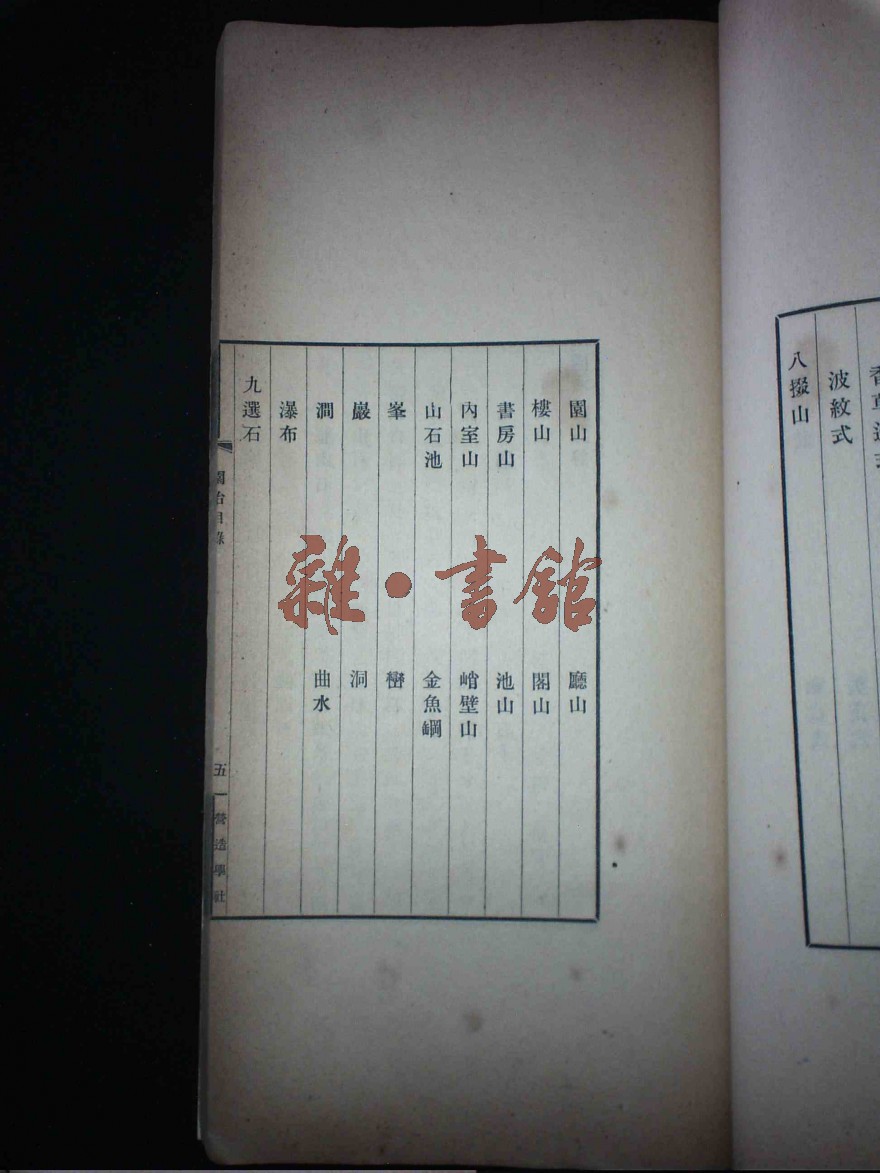 波紋式
八掇山
園山 廳山
樓山 閣山
書房山 池山
內室山 峭壁山
山石池 金魚缸
峯 巒
巖 洞
澗 曲水
瀑布
九選石
園冶目錄
五
營造學社
雜·書館